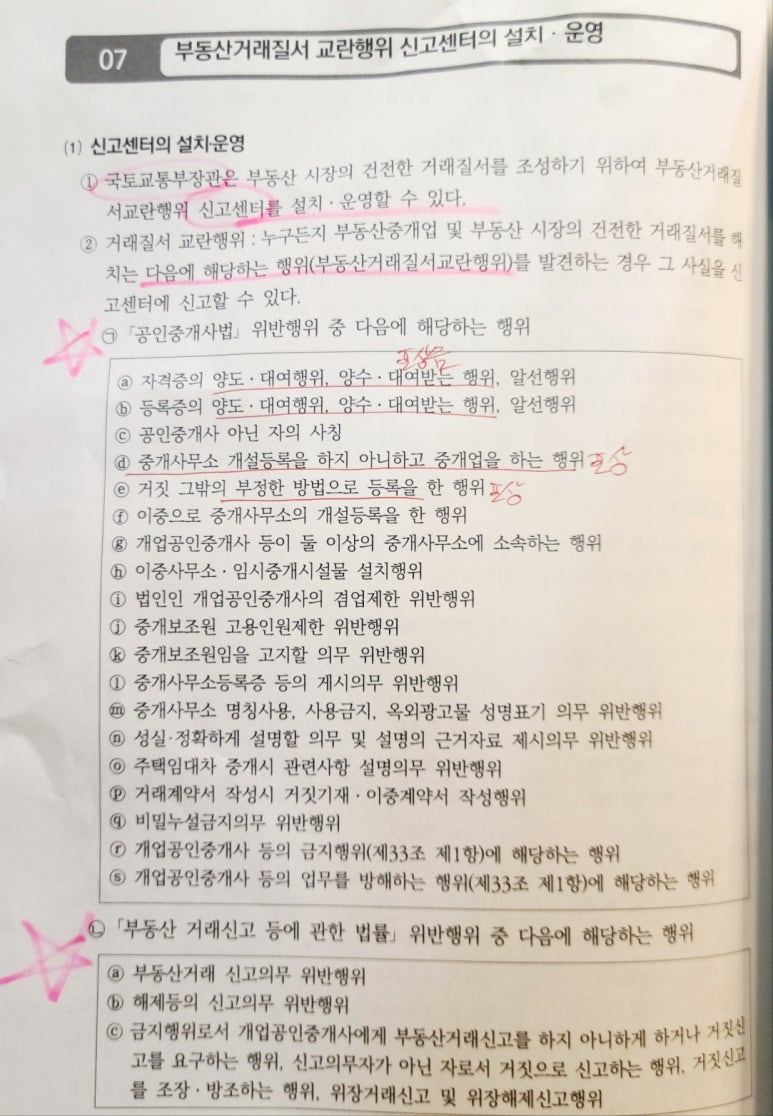 07 부동산거래질서 교란행위 신고센터의 설치 · 운영
(1) 신고센터의 설치·운영
① 국토교통부장관은 부동산 시장의 건전한 거래질서를 조성하기 위하여 부동산거래질
서교란행위 신고센터를 설치 · 운영할 수 있다.
② 거래질서 교란행위 : 누구든지 부동산중개업 및 부동산 시장의 건전한 거래질서를 해
치는 다음에 해당하는 행위(부동산거래질서교란행위)를 발견하는 경우 그 사실을 신
고센터에 신고할 수 있다.
㉠ 「공인중개사법」 위반행위 중 다음에 해당하는 행위
포상금
ⓐ 자격증의 양도 · 대여행위, 양수 · 대여받는 행위, 알선행위
ⓑ 등록증의 양도 · 대여행위, 양수 · 대여받는 행위, 알선행위
ⓒ 공인중개사 아닌 자의 사칭
ⓓ 중개사무소 개설등록을 하지 아니하고 중개업을 하는 행위 포상
ⓔ 거짓 그밖의 부정한 방법으로 등록을 한 행위 포상
ⓕ 이중으로 중개사무소의 개설등록을 한 행위
ⓖ 개업공인중개사 등이 둘 이상의 중개사무소에 소속하는 행위
ⓗ 이중사무소 · 임시중개시설물 설치행위
ⓘ 법인인 개업공인중개사의 겸업제한 위반행위
ⓙ 중개보조원 고용인원제한 위반행위
ⓚ 중개보조원임을 고지할 의무 위반행위
ⓛ 중개사무소등록증 등의 게시의무 위반행위
ⓜ 중개사무소 명칭사용, 사용금지, 옥외광고물 성명표기 의무 위반행위
ⓝ 성실·정확하게 설명할 의무 및 설명의 근거자료 제시의무 위반행위
ⓞ 주택임대차 중개시 관련사항 설명의무 위반행위
ⓟ 거래계약서 작성시 거짓기재 · 이중계약서 작성행위
ⓠ 비밀누설금지의무 위반행위
ⓡ 개업공인중개사 등의 금지행위(제33조 제1항)에 해당하는 행위
ⓢ 개업공인중개사 등의 업무를 방해하는 행위(제33조 제1항)에 해당하는 행위
㉡ 「부동산 거래신고 등에 관한 법률」 위반행위 중 다음에 해당하는 행위
ⓐ 부동산거래 신고의무 위반행위
ⓑ 해제등의 신고의무 위반행위
ⓒ 금지행위로서 개업공인중개사에게 부동산거래신고를 하지 아니하게 하거나 거짓신
고를 요구하는 행위, 신고의무자가 아닌 자로서 거짓으로 신고하는 행위, 거짓신고
를 조장 · 방조하는 행위, 위장거래신고 및 위장해제신고행위